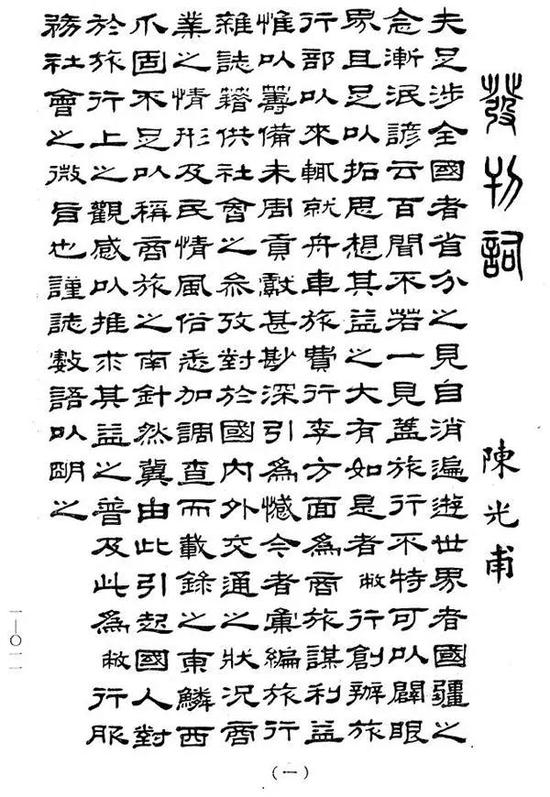 發刊詞 陳光甫
夫足涉全國者省分之見自消遍遊世界者國疆之
念漸泯諺云百聞不若一見蓋旅行不特可以闢眼
界且足以拓思想其益之大有如是者敝行創辦旅
行部以來輒就舟車旅費行李方面為商旅謀利益
惟以籌備未周貢獻甚尠深引為憾今者彙編旅行
雜誌藉供社會之參攷對於國內外交通之狀況商
業之情形及民情風俗悉加調查而載錄之東鱗西
爪固不足以稱商旅之南針然冀由此引起國人對
於旅行上之觀感以推求其益之普及此為敝行服
務社會之微旨也謹誌數語以明之
一—〇一一
(一)